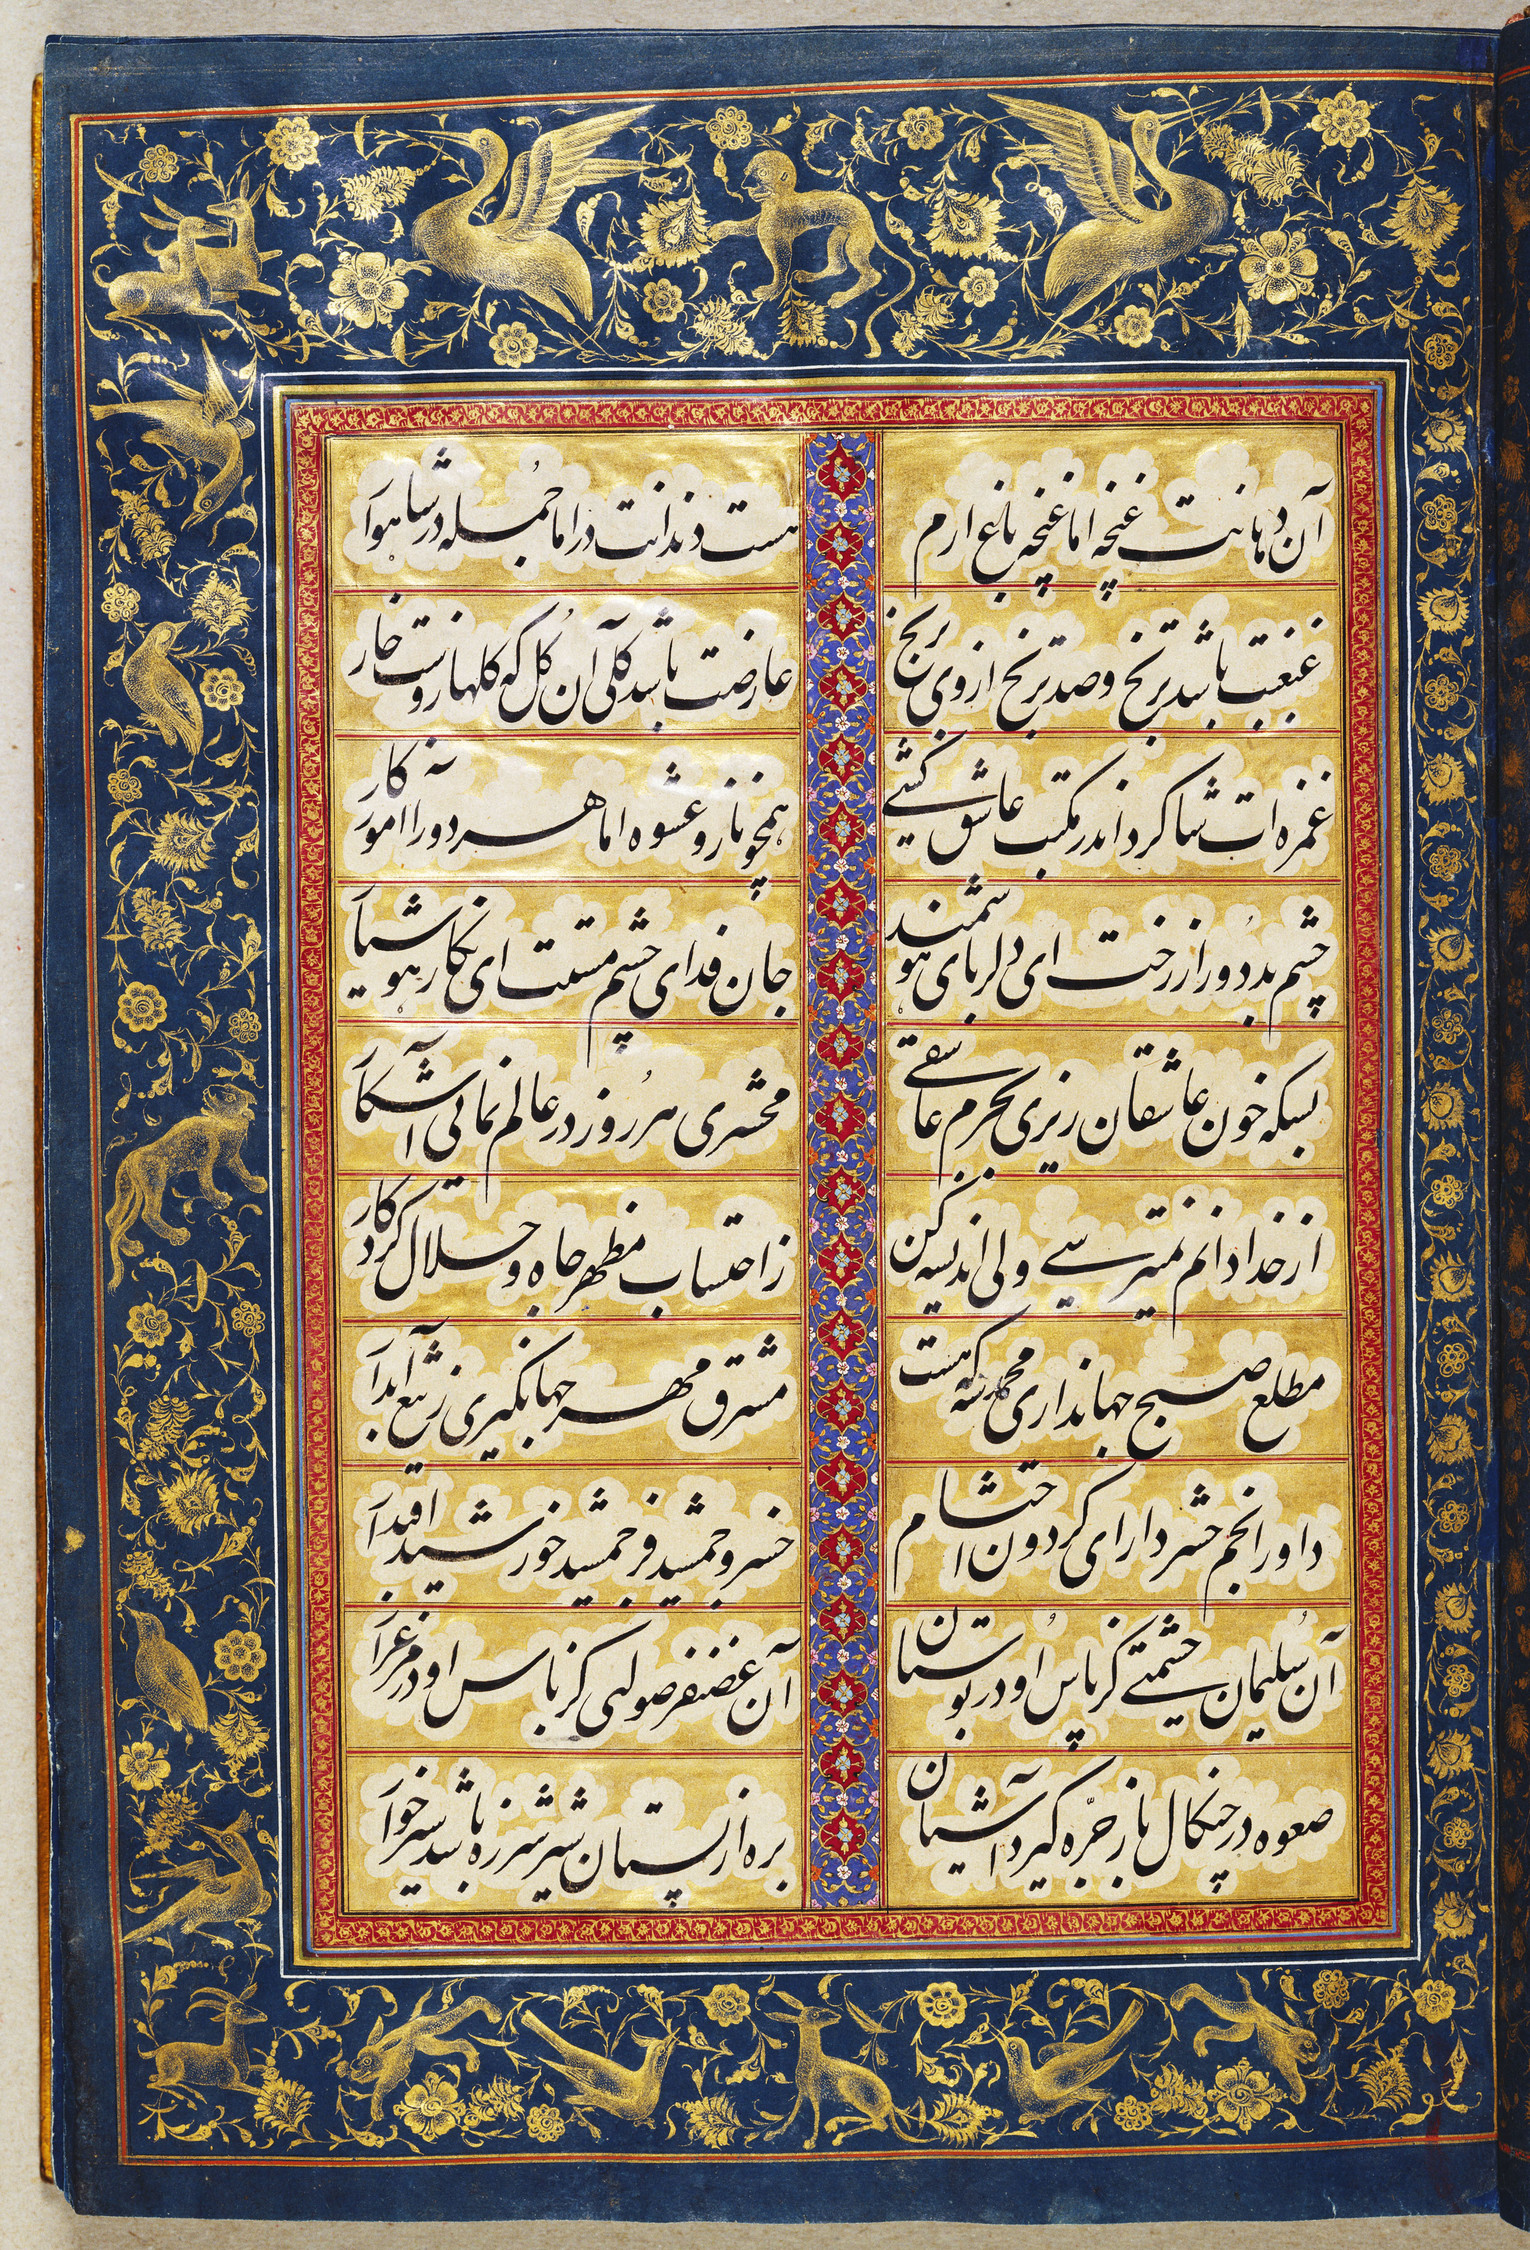 آن دهانت غنچه اما غنچه باغ ارم
هست دندانت در اما جمله در شاهوار
غبغبت باشد ترنج و صد ترنج از وی برنج
عارضت باشد گلی آن گل که گلها زوست خار
غمزه ات شاگرد اندر مکتب عاشق کشی
همچو ناز و عشوه اما هر دو را آموزگار
چشم بد دور از رخت ای دلربای هوشمند
جان فدای چشم مستت ای نگار هوشیار
بسکه خون عاشقان ریزی بجرم عاشقی
محشری هر روز در عالم نمائی آشکار
از خدا دانم نمیترسی ولی اندیشه کن
ز احتساب مظهر جاه و جلال کردگار
مطلع صبح جهانداری محمد شه که هست
مشرق مهر جهانگیری ز تیغ آبدار
داور انجم حشر دارای گردون احتشام
خسرو جمشید فر جمشید خورشید اقتدار
آن سلیمان حشمتی کز پاس او در بوستان
آن غضنفر صولتی کز باس او در مرغزار
صعوه در چنگال باز جره گیرد آشیان
بره از پستان شیر شرزه باشد شیر خوار